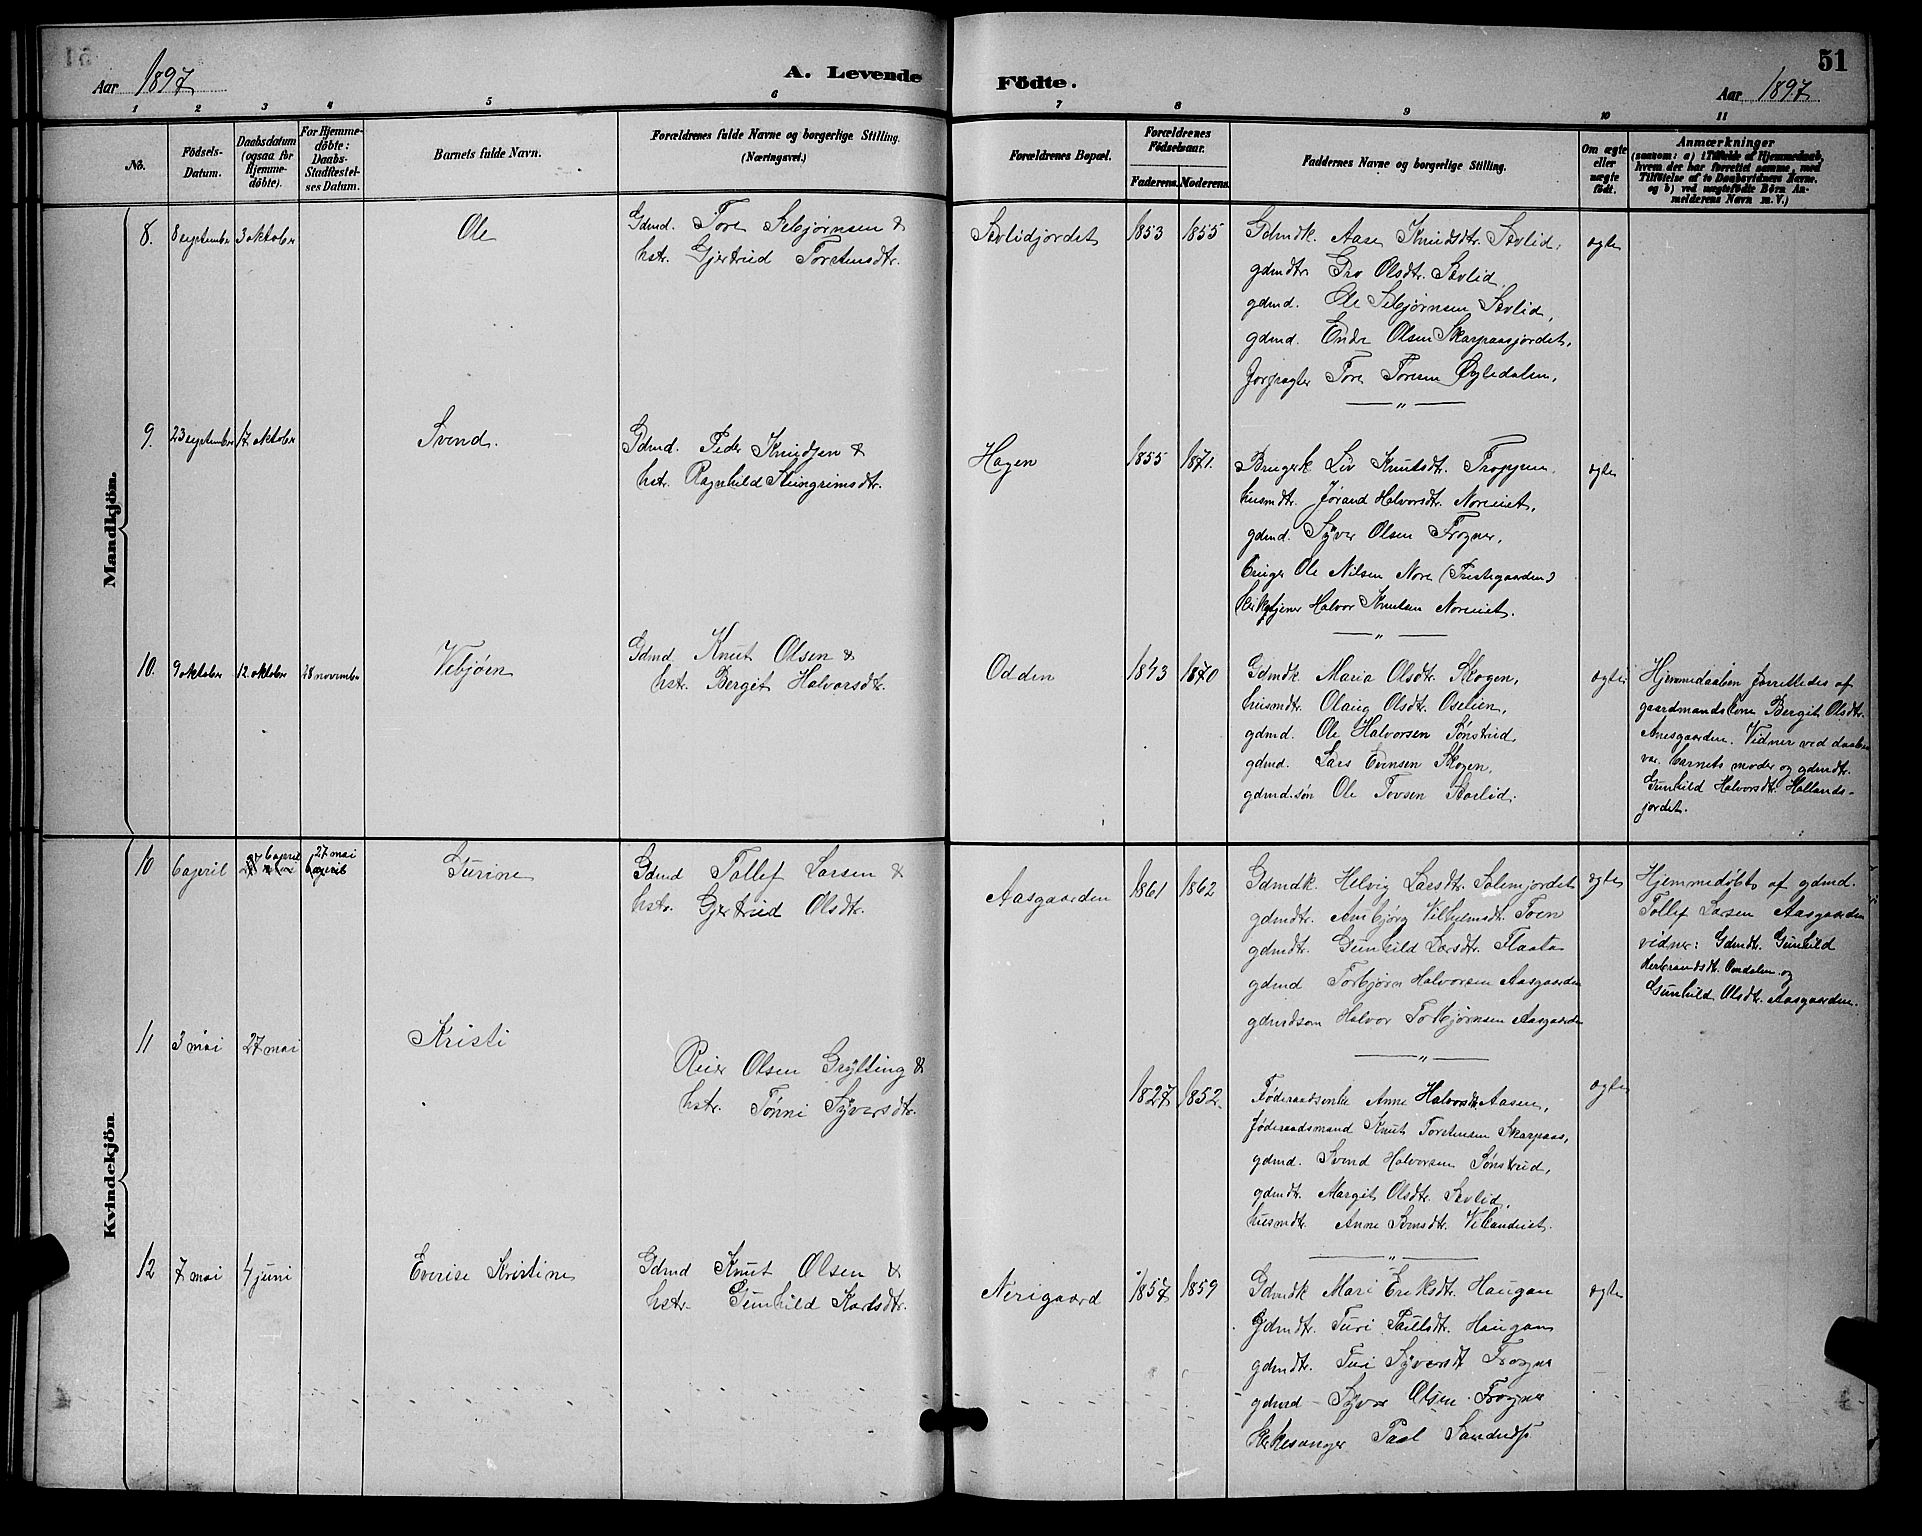 51
Aar 1897 A. Levende Födte. Aar 1897
1 2 3 4 5 6 7 8 9 10 11
No.
Födsels-Datum.
Daabsdatum (ogsaa for Hjemme-döbte).
For Hjemme-döbte: Daabs-Stadfestel-ses Datum.
Barnets fulde Navn.
Forældrenes fulde Navne og borgerlige Stilling. (Næringsvei.)
Forældrenes Bopæl.
Forældrenes Födselsaar.
Faderens. Moderens.
Faddernes Navne og borgerlige Stilling.
Om ægte eller uægte födt.
Anmærkninger
(saasom: a) i Tilfælde af Hjemmedaab, hvem der har forrettet samme, med Tilföielse af to Daabsvidners Navne, og b) ved uægtefödte Börn Anmelderens Navn m. V.)
Mandkjön.
8. 8 september 3 oktober Ole
Gdmd. Tore Sebjørnsen &
hstr. Gjertrud Torstensdtr.
Sevlidjordet 1853 1855
Gdmdk. Aase Knudsdtr. Sevlid,
gdmdtr. Gro Olsdtr. Sevlid,
gdmd. Ole Sebjørnsen Sevlid,
gdmd. Endre Olsen Skarpaasjordet,
Forpagter Tore Toresen Øyledalen,
— " —
ægte
9. 23 september 17 oktober Svend.
Gdmd. Peder Knudsen &
hstr. Ragnhild Steingrimsdtr.
Hagen 1855 1871.
Brugerk. Liv Knutsdtr. Troppen,
husmdtr. Jørand Halvorsdtr. Noreiet,
gdmd. Syver Olsen Frogner,
bruger Ole Nilsen Nore (Prestegaarden)
kirketjener Halvor Knutsen Noreiet.
— " —
ægte
10. 9 oktober 12. oktober 28 november Vebjøen
Gdmd Knut Olsen &
hstr. Bergit Halvorsdtr.
Odden 1843 1870
Gdmdk. Maria Olsdtr. Skogen,
husmdtr. Olaug Olsdtr. Oselien,
gdmd. Ole Halvorsen Sønstrud,
gdmd. Lars Evensen Skogen,
gdmd. søn Ole Tovsen Aaslid.
ægte
Hjemmedaaben forrettedes af
gaardmandskone Bergit Olsdtr.
Anesgaarden. Vidner ved daaben
var barnets moder og gdmdtr.
Gunhild Halvorsdtr. Hallands-
jordet.
Kvindekjön
10 6 april 6 april 27 mai Gurine
Gdmd Tollef Larsen &
hstr. Gjertrud Olsdtr.
Aasgaarden 1861 1862
Gdmdk. Helvig Larsdtr. Solemjordet
gdmdtr. Ambjørg Vilhelmsdtr. Toen
gdmdtr. Gunhild Larsdtr. Flaata
gdmd Torbjørn Halvorsen Aasgaarden
gdmdsøn Halvor Torbjørnsen Aasgaarden
— " —
ægte
Hjemmedøbt af gdmd.
Tollef Larsen Aasgaarden
vidner: Gdmdtr. Gunhild
Herbrandsdtr. Omdalen og
Gunhild Olsdtr. Aasgaarden.
11 3 mai 27 mai Kristi
Reier Olsen Grytting &
hstr. Tønni Syversdtr.
1827 1852.
Føderaadsenke Anne Halvorsdtr. Aasen,
føderaadsmand Knut Torstensen Skarpaas,
gdmd. Svend Halvorsen Sønstrud,
gdmdtr. Margit Olsdtr. Sevlid,
husmdtr. Anne Svensdtr. Vikandeiet.
— " —
ægte
12 7 mai 4 juni Everise Kristine
Gdmd Knut Olsen &
hstr. Gunhild Karlsdtr.
Nerigaard 1857 1859
Gdmdk Mari Eriksdtr. Haugan
Gdmdtr. Turi Paulsdtr. Haugan
gdmdtr. Turi Syversdt Frogner
gdmd - Syver Olsen Frogner
Kirkesanger Paal
ægte